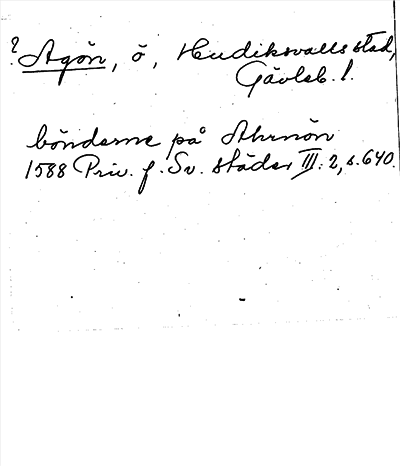 ? Agön, ö, Hudiksvalls stad,
Gävleb. l.
bönderne på Ahrnön
1588 Priv. f. Sv. städer III: 2, s. 640.